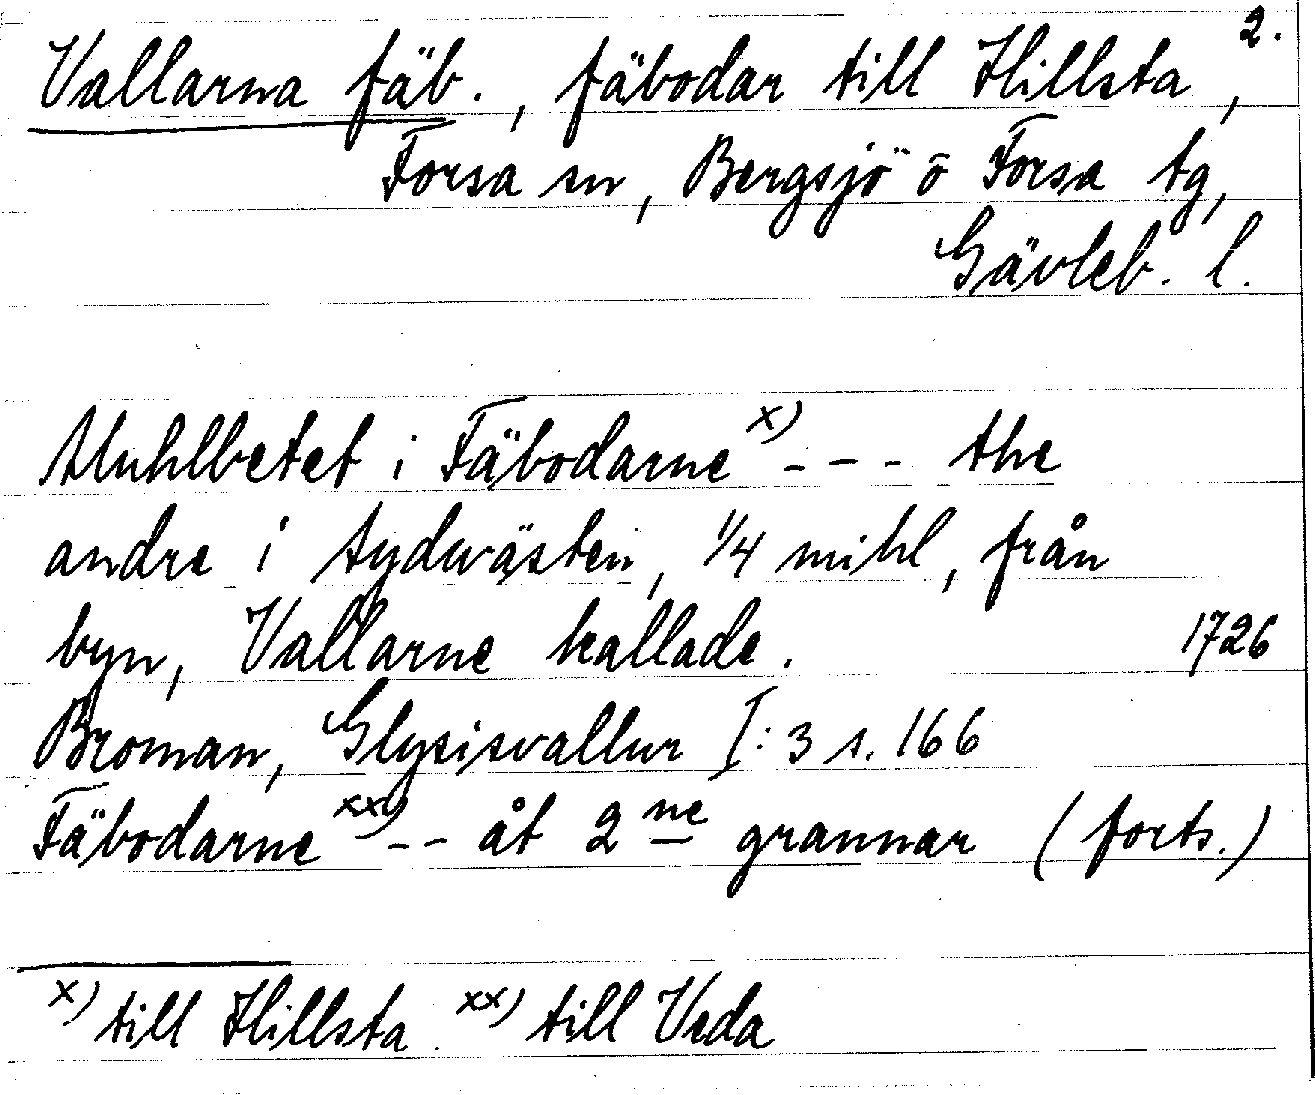 2.
Vallarna fäb., fäbodar till Hillsta,
Forsa sn, Bergsjö o Forsa tg,
Gävleb. l.
Muhlbetet i Fäbodarne x) - - - the
andre i sydwästen, 1/4 mihl, från
byn, Vallarne kallade. 1726
Broman, Glysisvallur I:3 s. 166
Fäbodarne xx) - - åt 2ne grannar (forts.)
x) till Hillsta. xx) till Veda